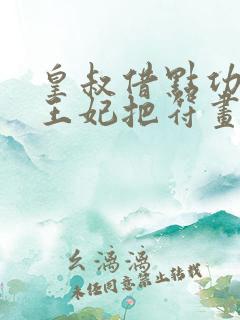 皇叔借點功
王妃把符畫
幺漓漓
未经同意禁止转载